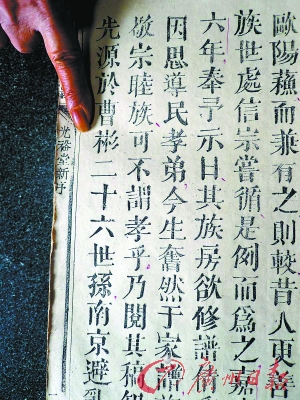 歐陽蘇而兼有之則較昔人更善
族世處信宗嘗循是例而爲之嘉
六年奉予示日其族房欲修譜
因思導民孝弟今生奮然于家譜
敬宗睦族可不謂孝乎乃閱其稿
先源於曹彬二十六世孫南京避
光裕堂新序
廣州日报